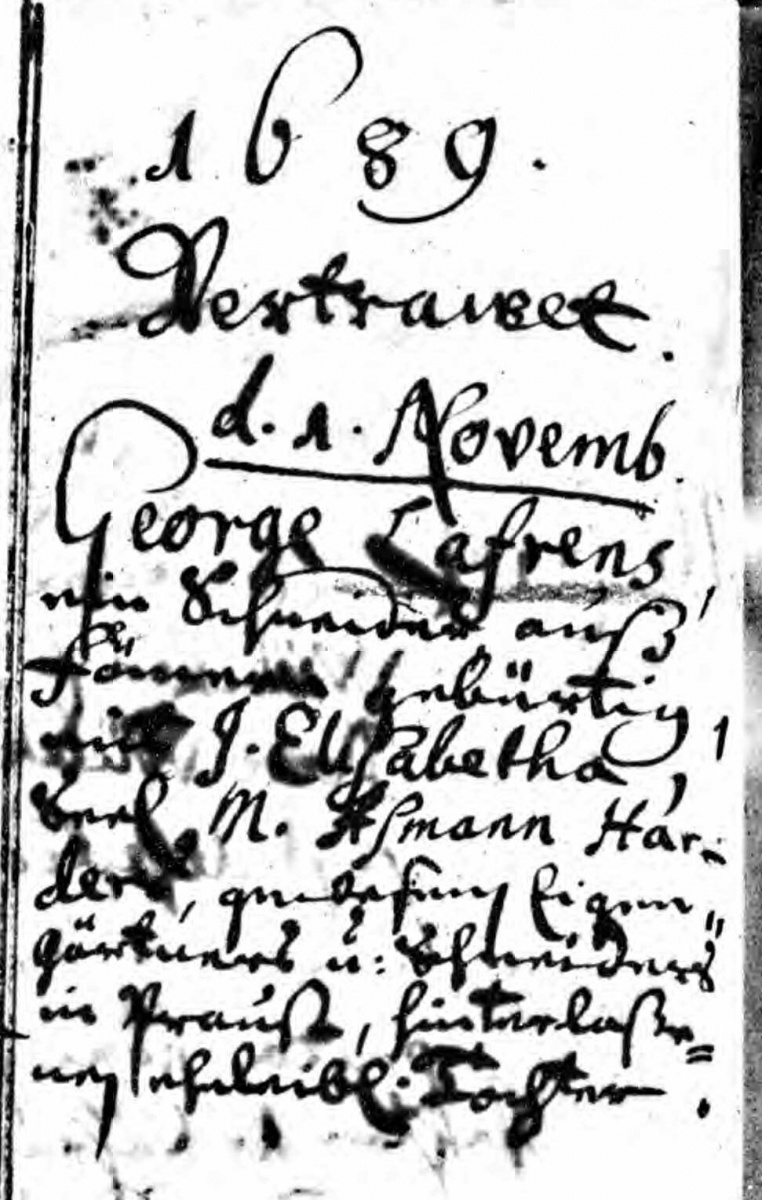 1689.
Vertrawet.
d. 1. Novemb.
George Lafrens,
ein Schneider auß
gebürtig,
mit J. Elisabetha,
Seel. M. Aßmann Har-
ders, gewesenen Eigen„
gärtners u: Schneiders
in Prauß, hinterlaße=
nen eheleibl. Tochter.